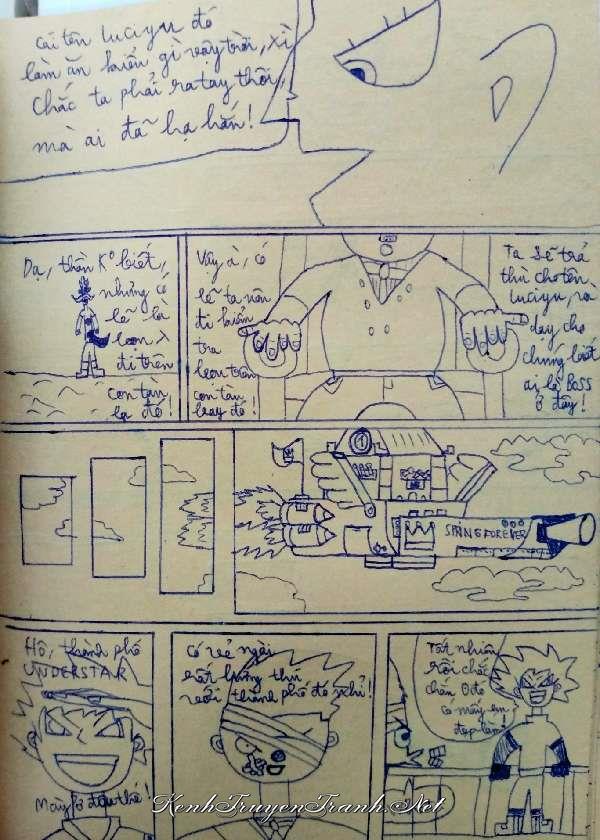 Cái tên luciyu đó
làm ăn kiểu gì vậy trời, xì
Chắc ta phải ra tay thôi,
mà ai đã hạ hắn!
Dạ, thần K° biết,
nhưng có
lẽ là
bọn
đi trên
con tàu
lạ đó!
Vậy à, có
lẽ ta nên
đi kiểm
tra
bọn trên
con tàu
bay đó!
Ta sẽ trả
thù cho tên
luciyu, và
dạy cho
chúng biết
ai là BOSS
ở đây!
SPRING FOREVER
Hô, thành phố
UNDERSTAR
Mày ở đâu thế!
Có vẻ ngài
rất hứng thú
với thành phố đó nhỉ!
Tất nhiên
rồi chắc
chắn ở đó
có mấy em
đẹp lắm!
KenhTruyenTranh.Net